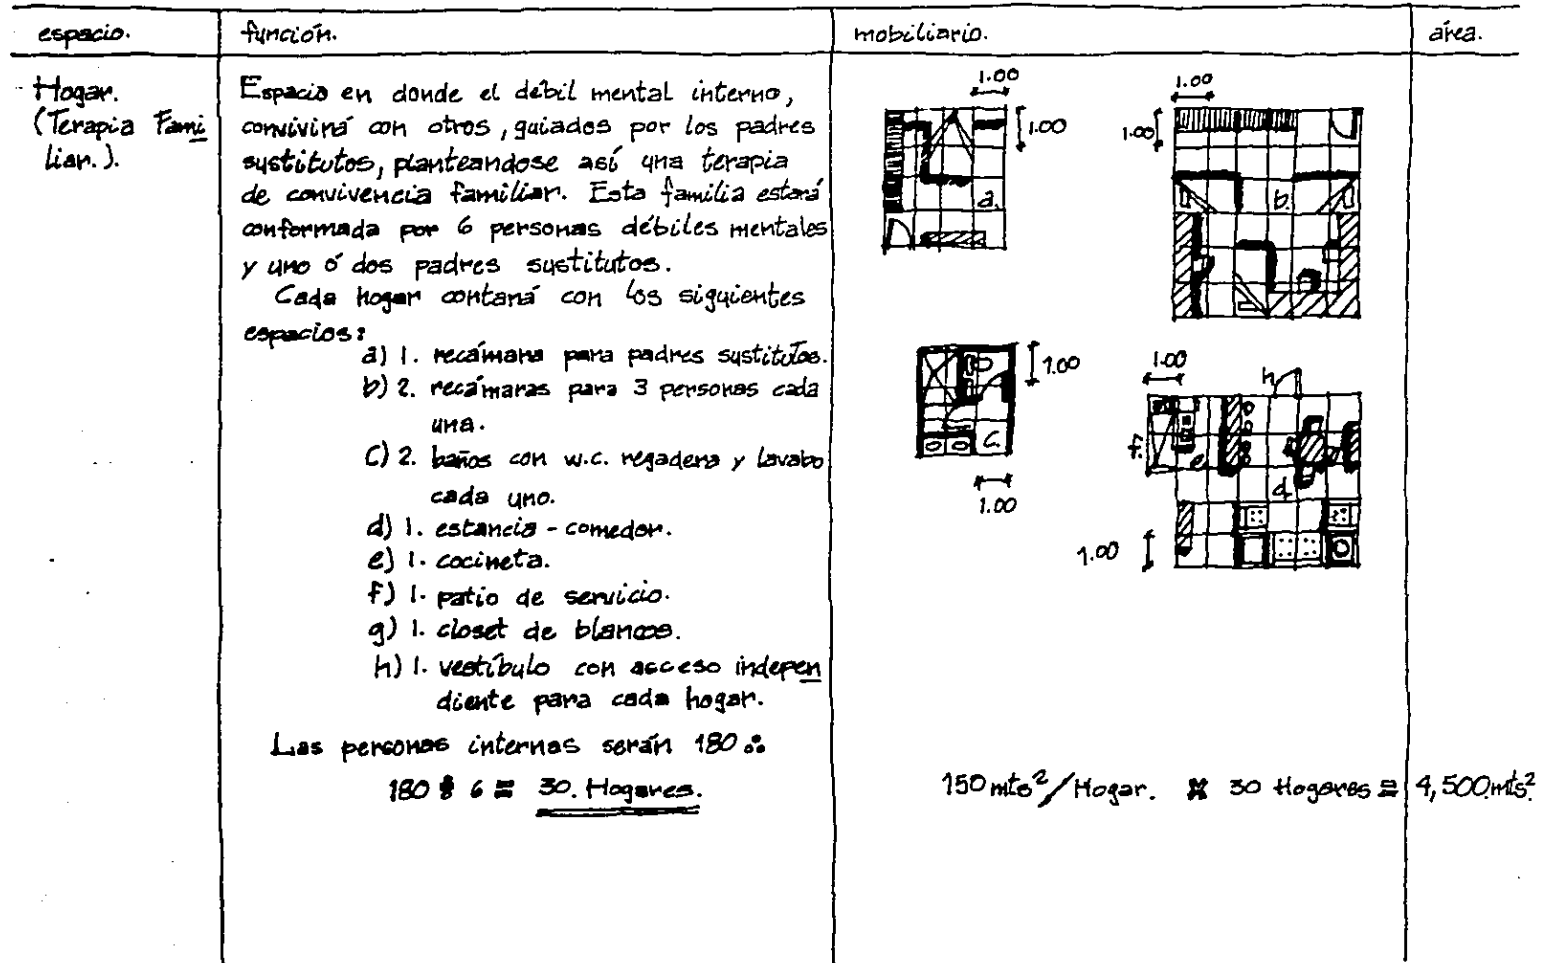 espacio. función. mobiliario. área.
Hogar.
(Terapia Fami
liar.).
Espacio en donde el débil mental interno,
convivirá con otros, guiados por los padres
sustitutos, planteandose así una terapia
de convivencia familiar. Esta familia estará
conformada por 6 personas débiles mentales
y uno ó dos padres sustitutos.
Cada hogar contará con los siguientes
espacios:
a) 1. recámara para padres sustitutos.
b) 2. recámaras para 3 personas cada
una.
c) 2. baños con w.c. regadera y lavabo
cada uno.
d) 1. estancia - comedor.
e) 1. cocineta.
f) 1. patio de servicio.
g) 1. closet de blancos.
h) 1. vestíbulo con acceso indepen
diente para cada hogar.
Las personas internas serán 180 ∴
180 ÷ 6 = 30. Hogares.
1.00
1.00
a.
1.00
1.00
b.
1.00
c.
1.00
1.00
h
f.
e
d
1.00
150 mts²/Hogar. x 30 Hogares = 4,500 mts²